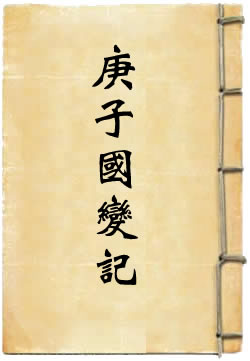 庚子國變記